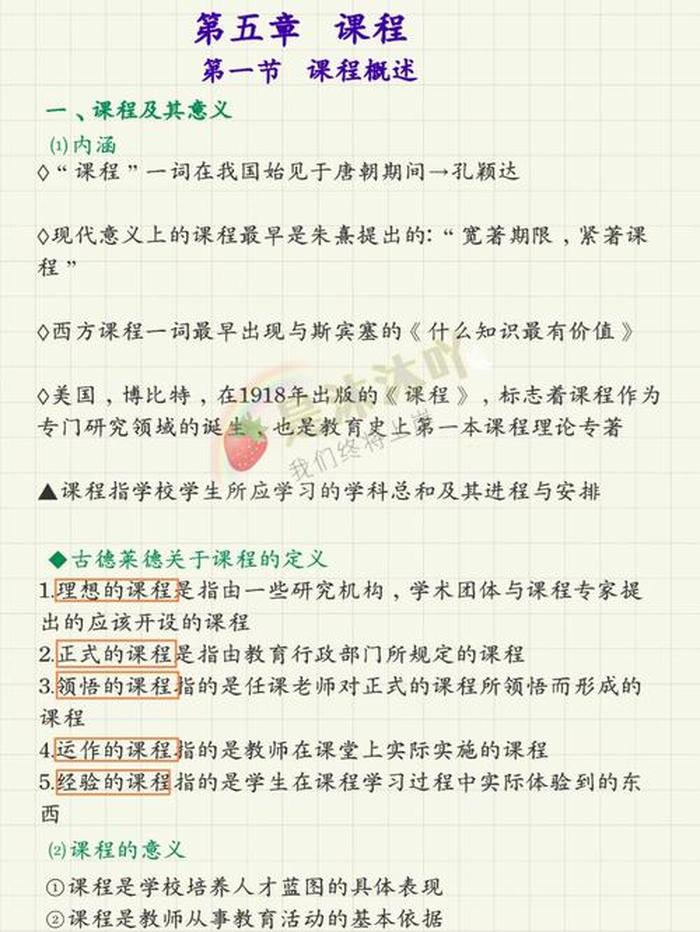 第五章 课程
第一节 课程概述
一、课程及其意义
⑴内涵
◊“课程”一词在我国始见于唐朝期间→孔颖达
◊现代意义上的课程最早是朱熹提出的:“宽著期限,紧著课
程”
◊西方课程一词最早出现与斯宾塞的《什么知识最有价值》
◊美国,博比特,在1918年出版的《课程》,标志着课程作为
专门研究领域的诞生,也是教育史上第一本课程理论专著
▲课程指学校学生所应学习的学科总和及其进程与安排
◆古德莱德关于课程的定义
1.理想的课程是指由一些研究机构,学术团体与课程专家提
出的应该开设的课程
2.正式的课程是指由教育行政部门所规定的课程
3.领悟的课程指的是任课老师对正式的课程所领悟而形成的
课程
4.运作的课程指的是教师在课堂上实际实施的课程
5.经验的课程指的是学生在课程学习过程中实际体验到的东
西
⑵课程的意义
①课程是学校培养人才蓝图的具体表现
②课程是教师从事教育活动的基本依据
是沐沐吖
我们终将上岸